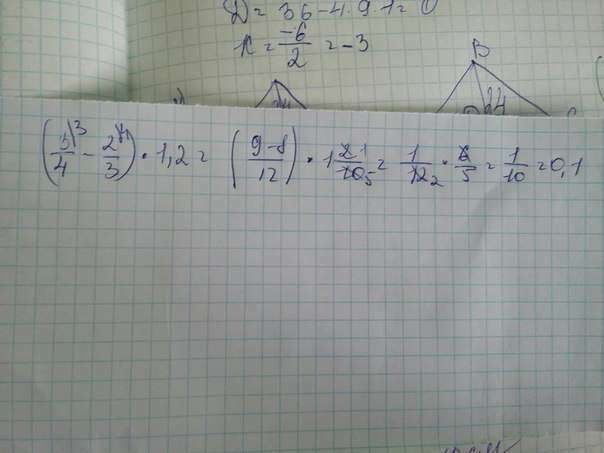 D = 36 - 4·9·1 = 0
x = \frac{-6}{2} = -3
B
24
(\frac{3}{4}^{\backslash 3} - \frac{2}{3}^{\backslash 4}) · 1,2 = (\frac{9-8}{12}) · 1\frac{2^1}{10_5} = \frac{1}{12_2} · \frac{6}{5} = \frac{1}{10} = 0,1